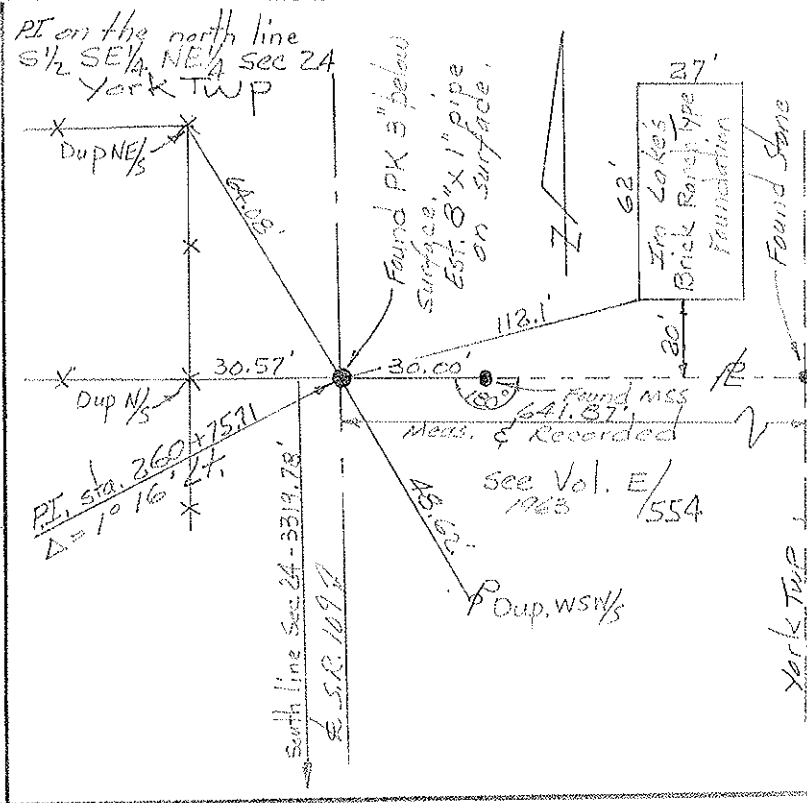 PI on the north line
S½ SE¼ NE¼ Sec 24
York TWP
Dup NE/s
64.08'
Found PK 3" below
surface.
Est. 8" X 1" pipe
on surface.
27'
62'
Brick Ranch Type
Foundation
Found Stone
112.1'
30.57'
30.00'
Dup N/s
180°
Found MSS
641.87'
Meas. & Recorded
P.I. sta. 260+75.71
Δ = 1° 16' Lt.
See Vol. E/554
1963
48.62'
Dup. WSW/s
South line Sec. 24 - 3319.78'
S.R. 109
York TWP